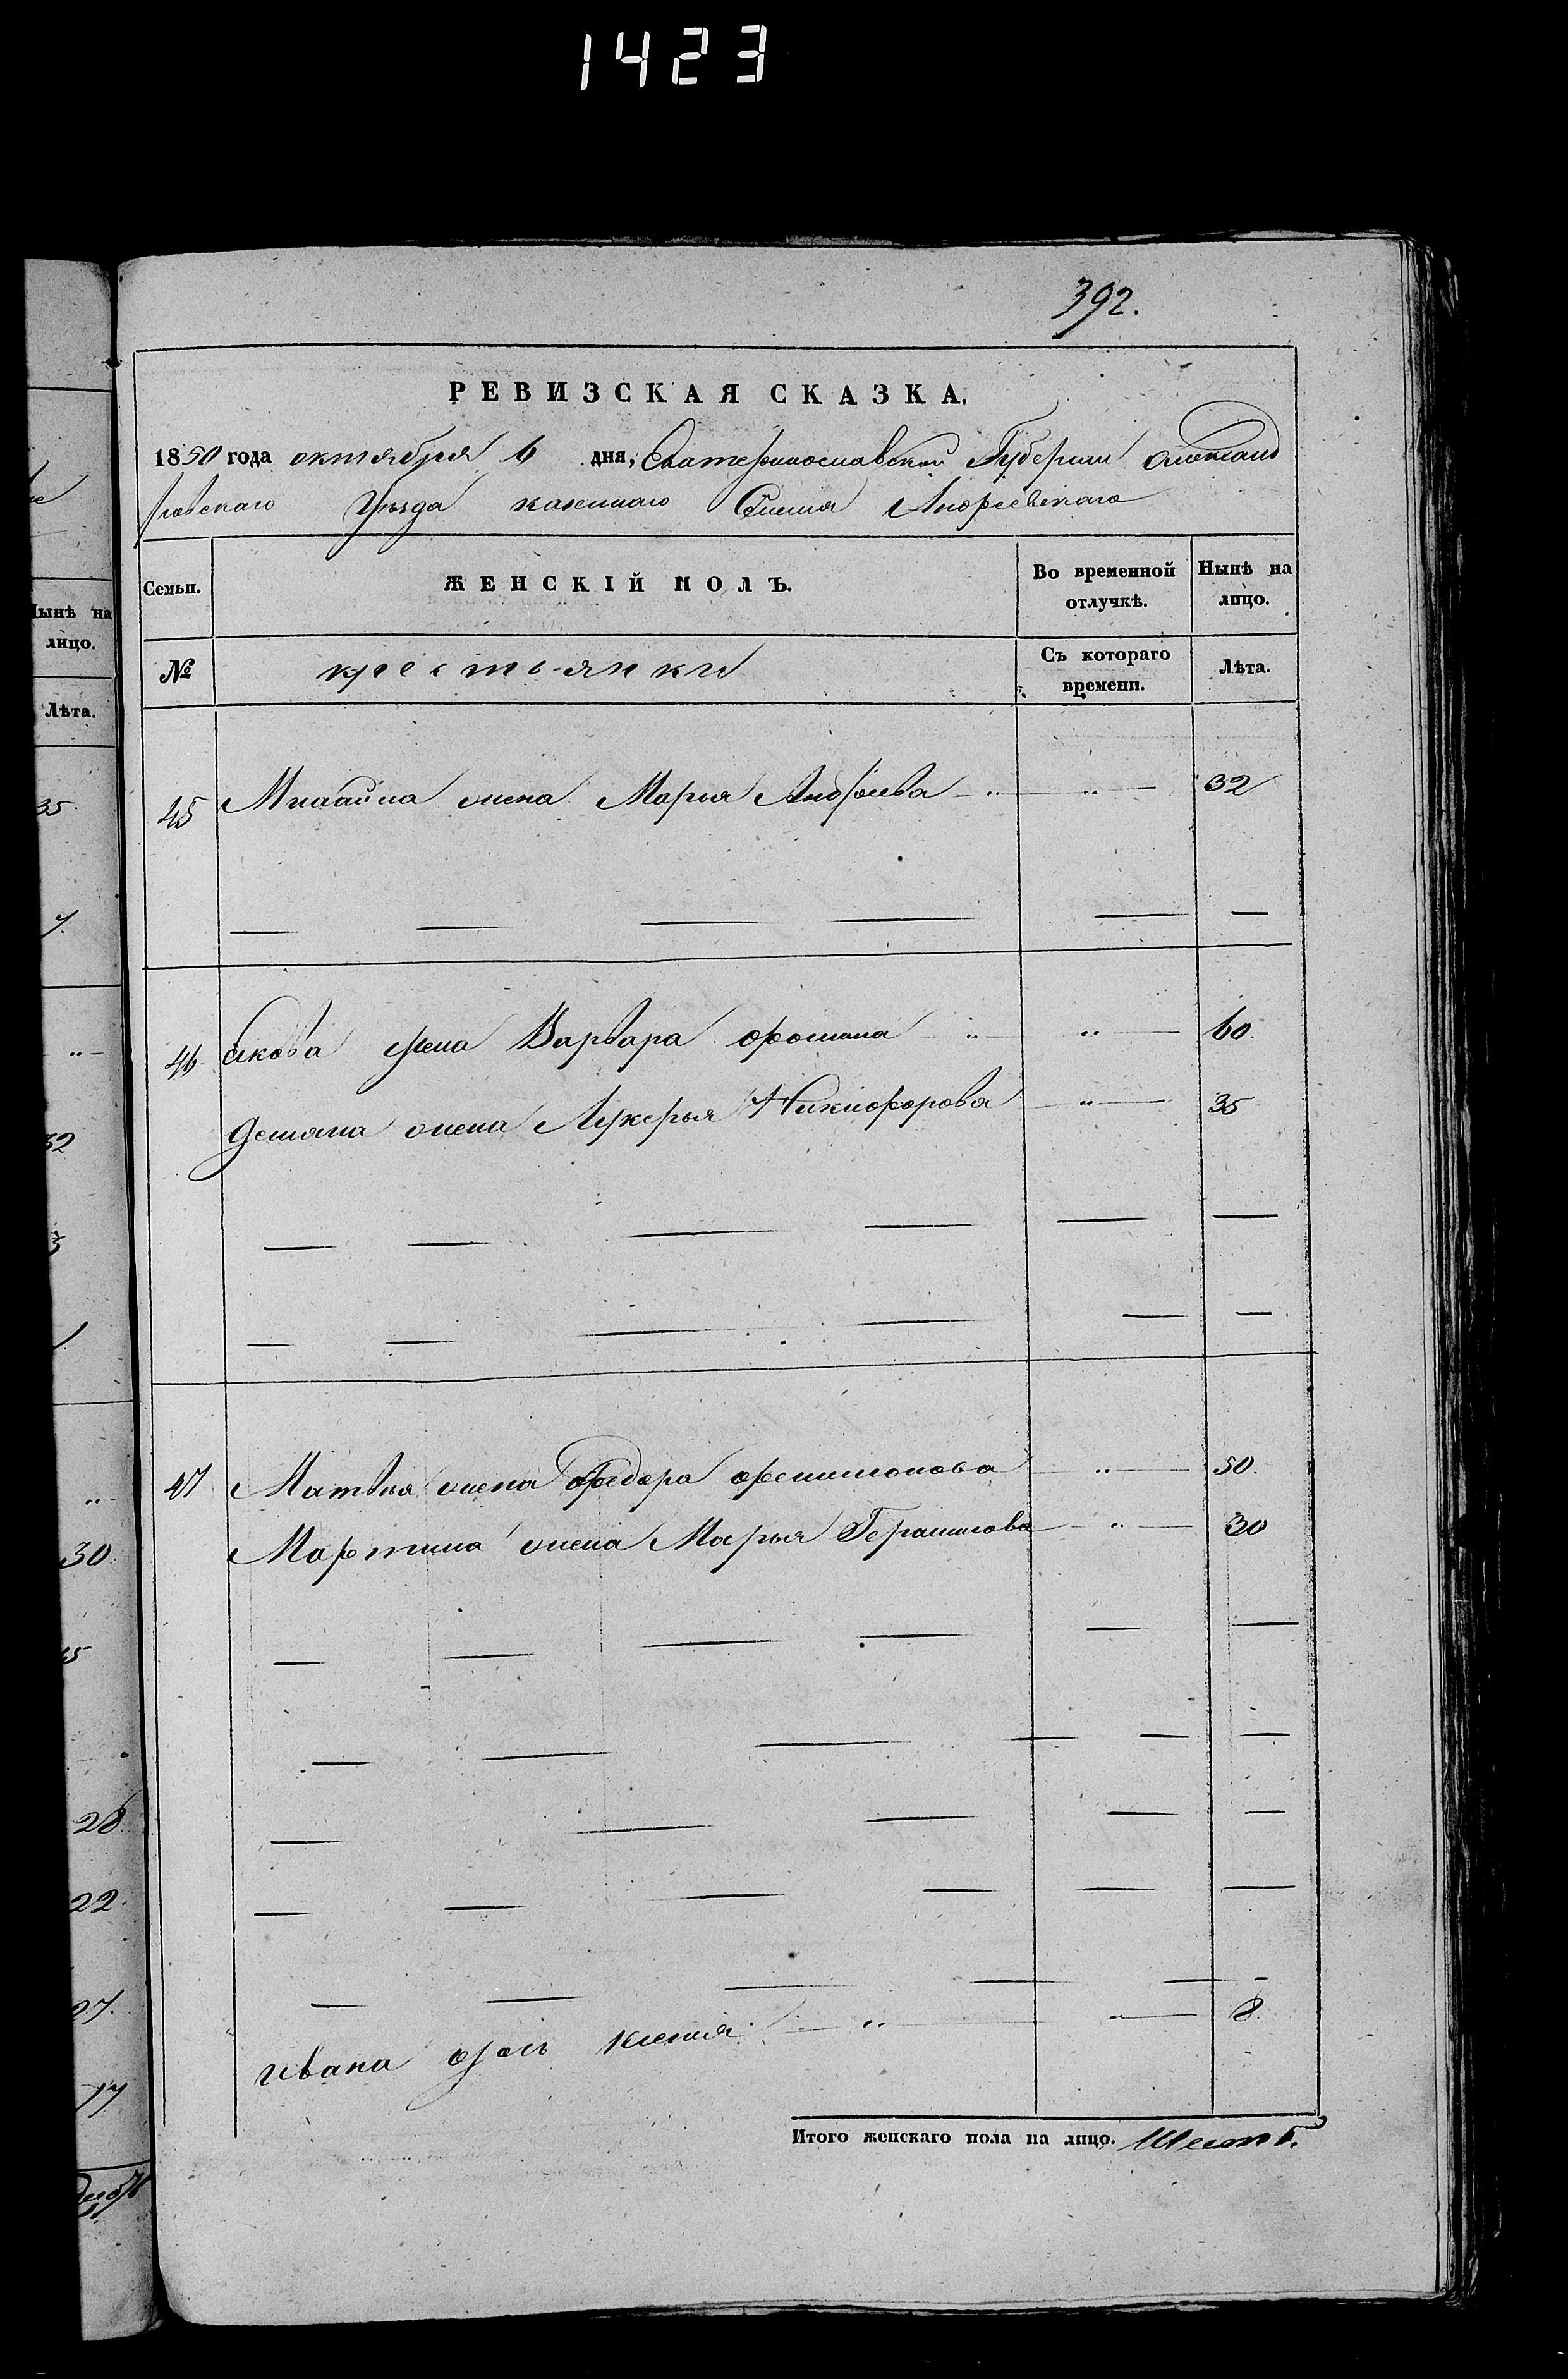 1423
392.
РЕВИЗСКАЯ СКАЗКА.
1850 года октября 6 дня, Екатеринославской Губернии Александ
ровскаго Уезда казеннаго Селения Андреевскаго
Семьи. ЖЕНСКІЙ ПОЛЪ. Во временной отлучкѣ. Нынѣ на лицо.
№ крестьянки Съ котораго времени. Лѣта.
45 жена Марья Андреева - " - " - 32
46 Якова жена Варвара Фомина " " - 60.
Демяна жена Лукерья Никифорова - " - 35
47 Матвея жена Федора - " - 50.
Мартина жена Марья Герасимова - " - 30
Ивана дочь Ксения - " - " - 8.
Итого женскаго пола на лицо. Шесть.
ынѣ на
лицо.
Лѣта.
35.
7.
" -
32
" -
30
28.
22.
27.
17